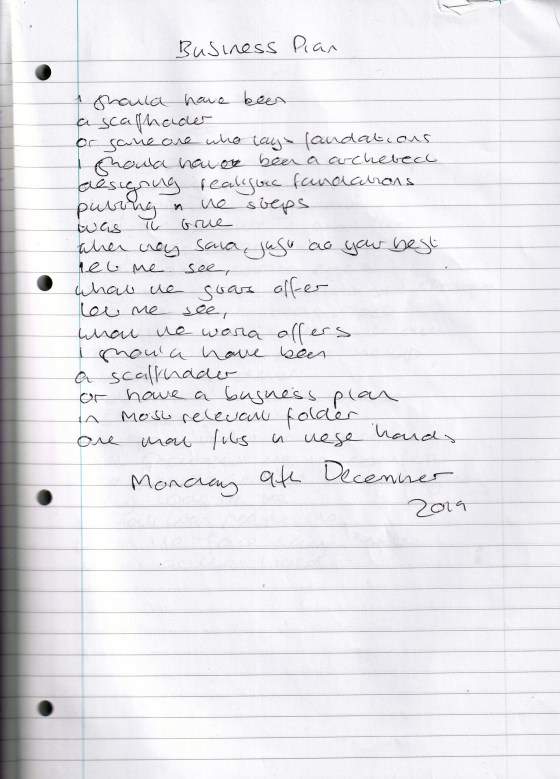 Business Plan
I should have been
a scafholder
or someone who lays foundations
I should have been a archetect
designing realistic foundations
putting in the steps
was it true
when they said, just do your best
let me see,
what the stars offer
let me see,
what the world offers
I should have been
a scaffholder
or have a business plan
in most relevant folder
one that fits in these hands
Monday 9th December
2019